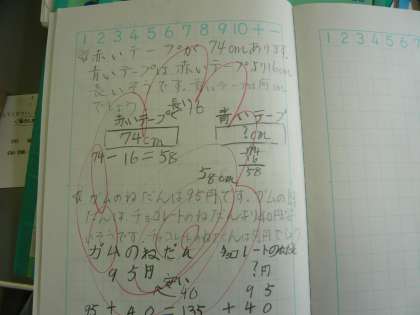 1 2 3 4 5 6 7 8 9 10 + −
赤いテープが 74cmあります。
青いテープは赤いテープより16cm
長いそうです。青いテープは何cm
でしょう 長い16
赤いテープ 青いテープ
74cm ?cm
74−16=58
74
16
58
58cm
ガムのねだんは95円です。ガムの
だんは、チョコレートのねだんより40円
そうです。チョコレートのねだんは
ガムのねだん チョコレートのねだん
95円 ?円
安い
40 95
95+40=135 +40
1 2 3 4 5 6 7